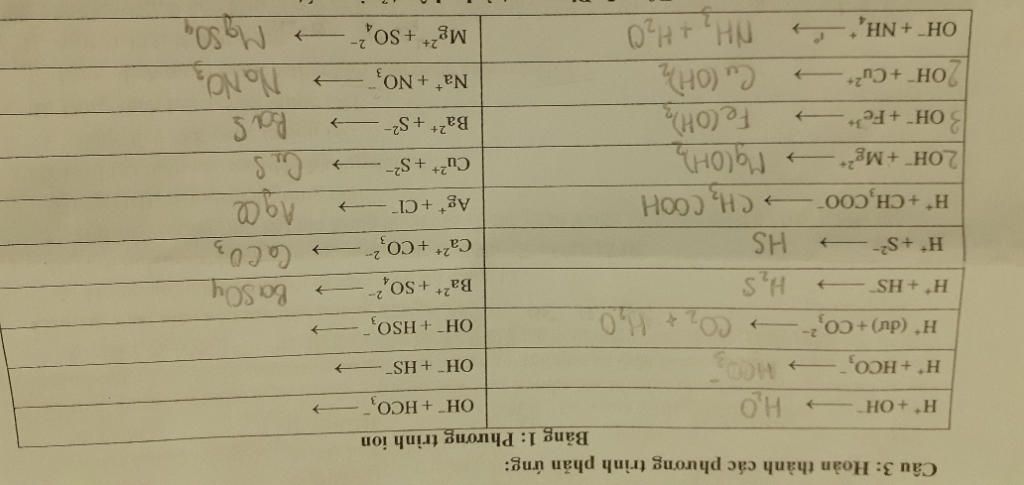 Câu 3: Hoàn thành các phương trình phản ứng:
Bảng 1: Phương trình ion
H⁺ + OH⁻ ⟶ H₂O
OH⁻ + HCO₃⁻ ⟶
H⁺ + HCO₃⁻ ⟶ HCO₃⁻
OH⁻ + HS⁻ ⟶
H⁺ (dư) + CO₃²⁻ ⟶ CO₂ + H₂O
OH⁻ + HSO₃⁻ ⟶
H⁺ + HS⁻ ⟶ H₂S
Ba²⁺ + SO₄²⁻ ⟶ BaSO₄
H⁺ + S²⁻ ⟶ HS
Ca²⁺ + CO₃²⁻ ⟶ CaCO₃
H⁺ + CH₃COO⁻ ⟶ CH₃COOH
Ag⁺ + Cl⁻ ⟶ AgCl
2OH⁻ + Mg²⁺ ⟶ Mg(OH)₂
Cu²⁺ + S²⁻ ⟶ CuS
3 OH⁻ + Fe³⁺ ⟶ Fe(OH)₃
Ba²⁺ + S²⁻ ⟶ BaS
2OH⁻ + Cu²⁺ ⟶ Cu(OH)₂
Na⁺ + NO₃⁻ ⟶ NaNO₃
OH⁻ + NH₄⁺ ⟶ t° NH₃ + H₂O
Mg²⁺ + SO₄²⁻ ⟶ MgSO₄